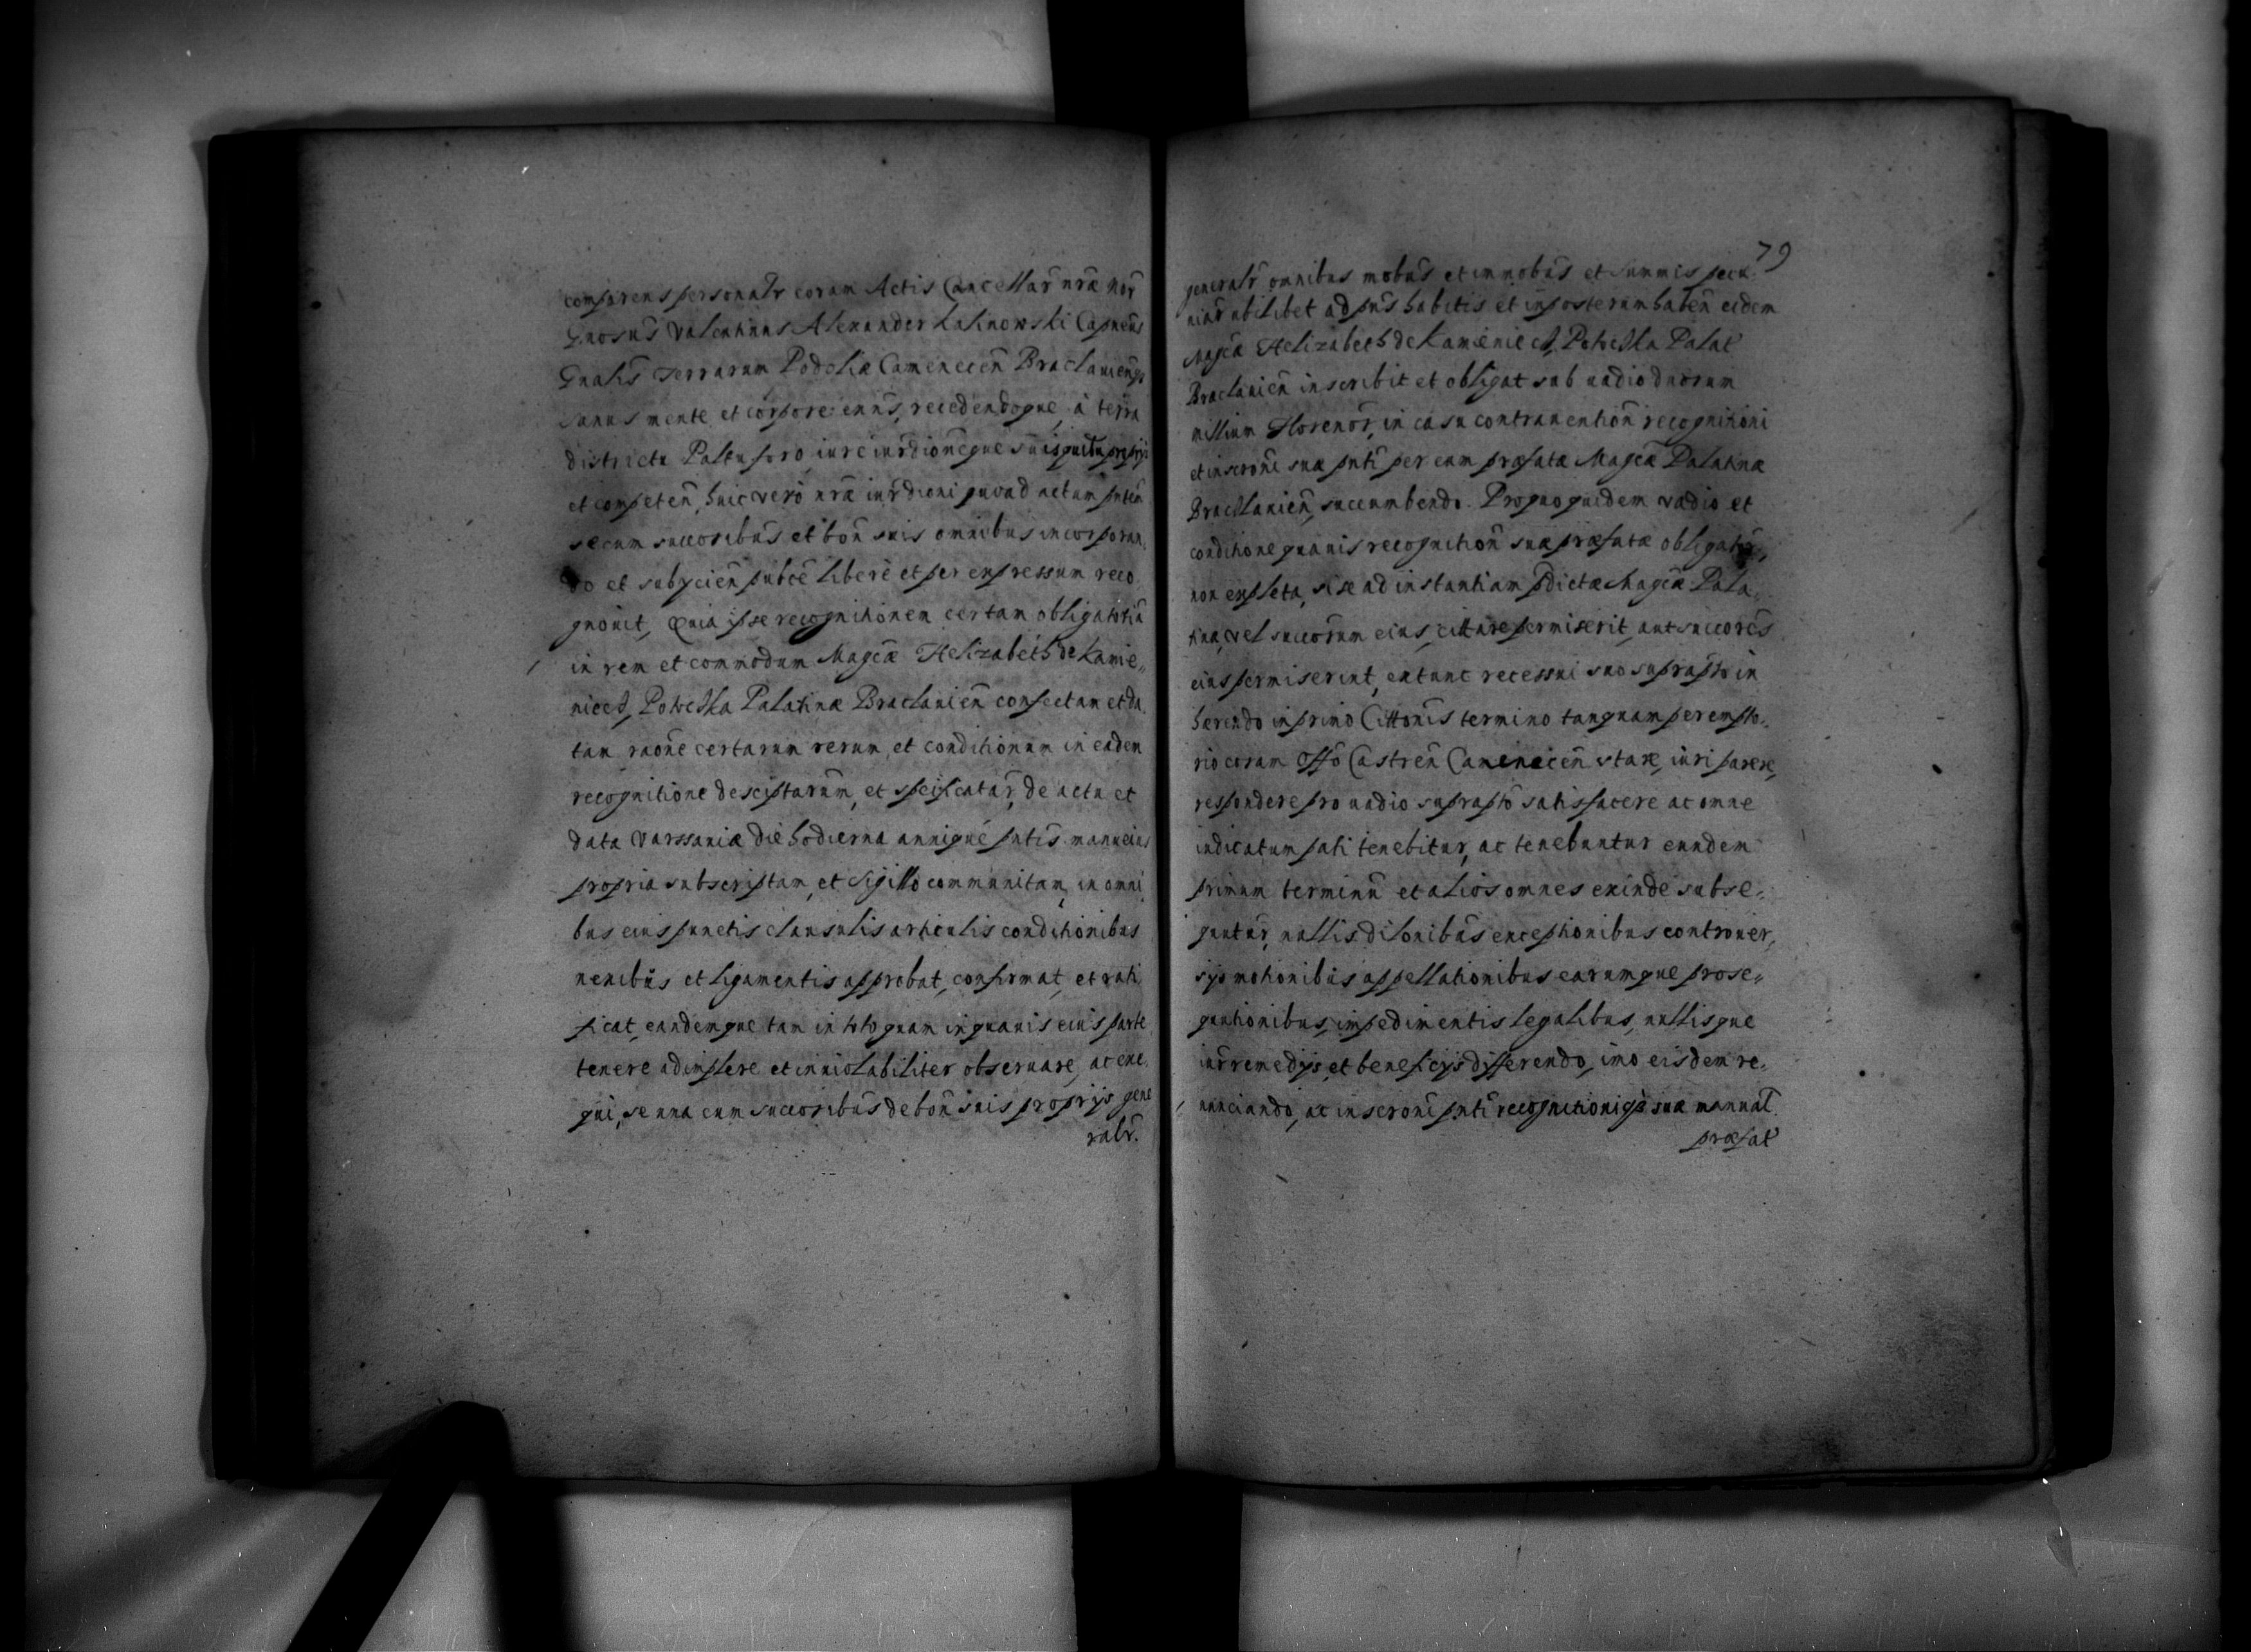 comparens personalr̃ coram Actis Cancellar̃ nr̃æ nõr
Gnosũs Valentinus Alexander Kalinowski Capneũs
Gnalĩs Terrarum Podoliæ Cameneceñ Braclauieñqe
sanus mente et corpore enñs, recedendoque à terra
districtu Paltu foro iure iurdioneque suis
et competeñ, huic vero nr̃æ iurdioni quoad actum
secum succoribũs et boñ suis omnibus incorporan,
do et subyicieñ publcẽ liberè et per expressum reco
gnouit, Quia ipse recognitionem certam obligatoriã
in rem et commodum Magcæ Helizabeth de Kamie„
niecz, Potocka Palatinæ Braclauieñ confectam et da
tam raõne certarum rerum et conditionum in eadem
recognitione desciptarum, et specificatar̃, de actu et
data Varssauiæ die hodierna annique pntis manu eius
propria subscriptam, et sigillo communitam, in omni
bus eius punctis clausulis articulis conditionibus
nexibũs et ligamentis approbat, confirmat, et rati
ficat, eandemque tam in toto quam in quauis eius parte
tenere adimplere et inuiolabiliter obseruare, ac exe
qui, se una cum succoribũs de boñ suis proprijs gene
ralr̃.
79
generalr̃ omnibus mobũs et immobũs et summis pecu
niar̃ ubilibet ad pñs habitis et inposterum habeñ eidem
Magcæ Helizabeth de Kamieniecz, Potocka Palat
Braclauieñ inscribit et obligat sub uadio duorum
millium Florenor̃, in casu contrauentioñ recognitioni
et inscroni suæ pnti per eum præfatæ Magcæ Palatinæ
Braclauieñ, succumbendo. Pro quo quidem vadio et
conditione quauis recognitioñ suæ præfatæ
non expleta, si se ad instantiam pdictæ Magcæ Pala„
tinæ, vel succorum eius, cittare permiserit, aut succorẽs
eius permiserint, extunc recessui suo suprapto in
herendo in primo Cittonis termino tanquam perempto„
rio coram Offo Castreñ Cameneceñ stare, iuri parere,
respondere pro uadio suprapto satisfacere ac omne
iudicatum pati tenebitur, ac tenebuntur eundem
primum terminũ et alios omnes exinde subse„
quutur̃, nullis dilonibũs exceptionibus controuer,
sijs motionibus appellationibus earumque prose„
quutionibus, impedimentis legalibus, nullisque
iur̃ remedijs, et beneficijs differendo, imo eisdem re„
nunciando, ac inscroni pnti recognitioniqe suæ manual
præfat